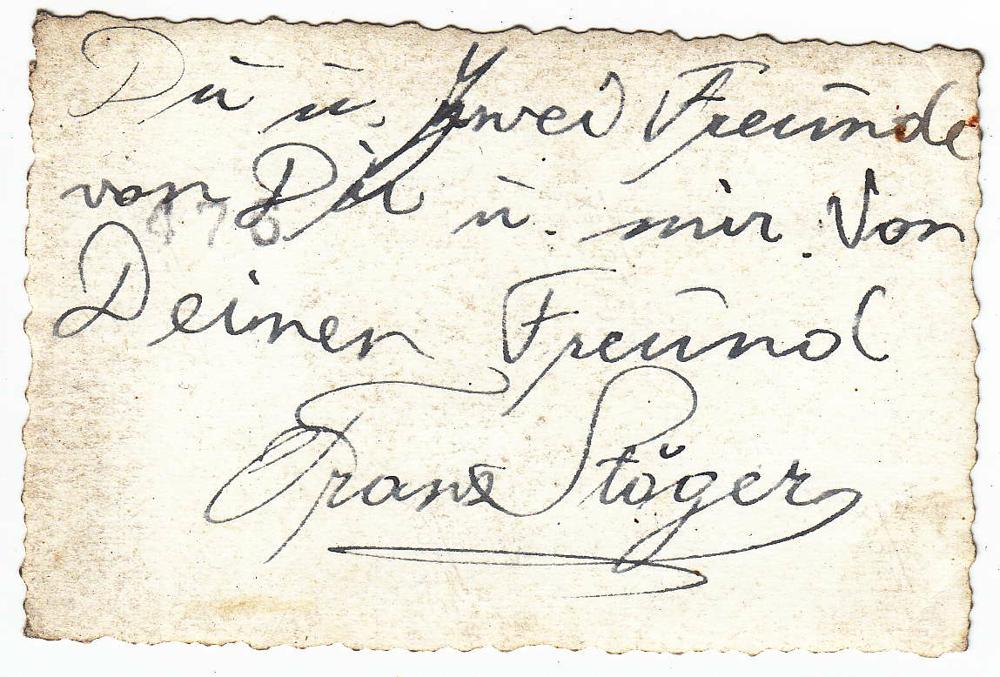 Du u. zwei Freunde
von Du u. mir. Von
Deinen Freund
Franz Stöger